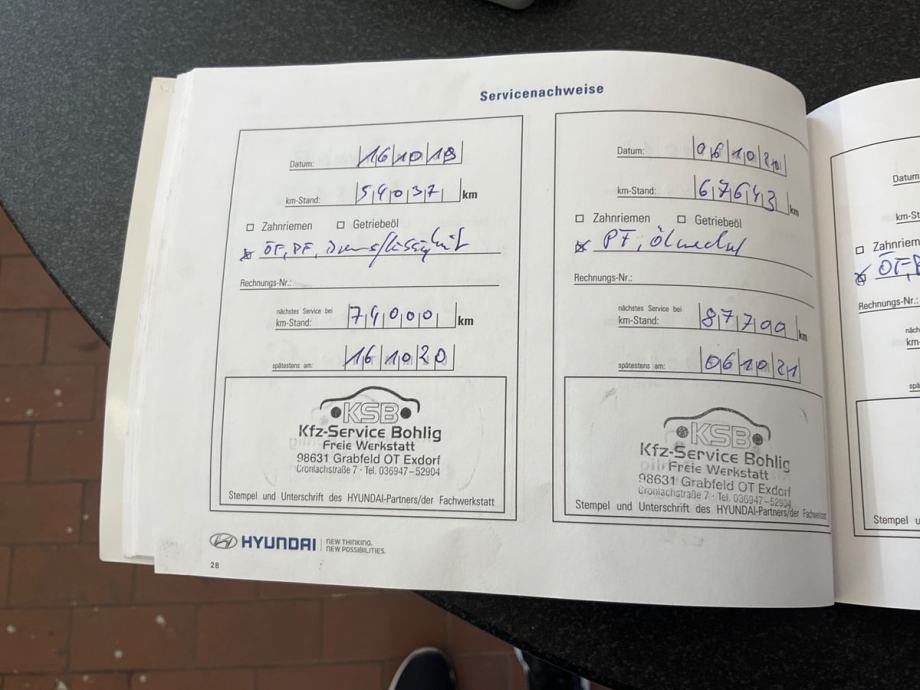 Servicenachweise
Datum: 16 10 19
km-Stand: 54037 km
Zahnriemen Getriebeöl
ÖF, PF, Bremsflüssigkeit
Rechnungs-Nr.:
nächstes Service bei
km-Stand: 74000 km
spätestens am: 16 10 20
KSB
Kfz-Service Bohlig
Freie Werkstatt
98631 Grabfeld OT Exdorf
Cronlachstraße 7 · Tel. 036947-52904
Stempel und Unterschrift des HYUNDAI-Partners/der Fachwerkstatt
Datum: 06 10 20
km-Stand: 67643 km
Zahnriemen Getriebeöl
PF, Ölwechsel
Rechnungs-Nr.:
nächstes Service bei
km-Stand: 87700 km
spätestens am: 06 10 21
KSB
Kfz-Service Bohlig
Freie Werkstatt
98631 Grabfeld OT Exdorf
Cronlachstraße 7 · Tel. 036947-52904
Stempel und Unterschrift des HYUNDAI-Partners/der Fachwerkstatt
HYUNDAI
NEW THINKING.
NEW POSSIBILITIES.
28
Datum
km-St
Zahnriem
ÖF,
Rechnungs-Nr.:
näch
km-
spä
Stempel u